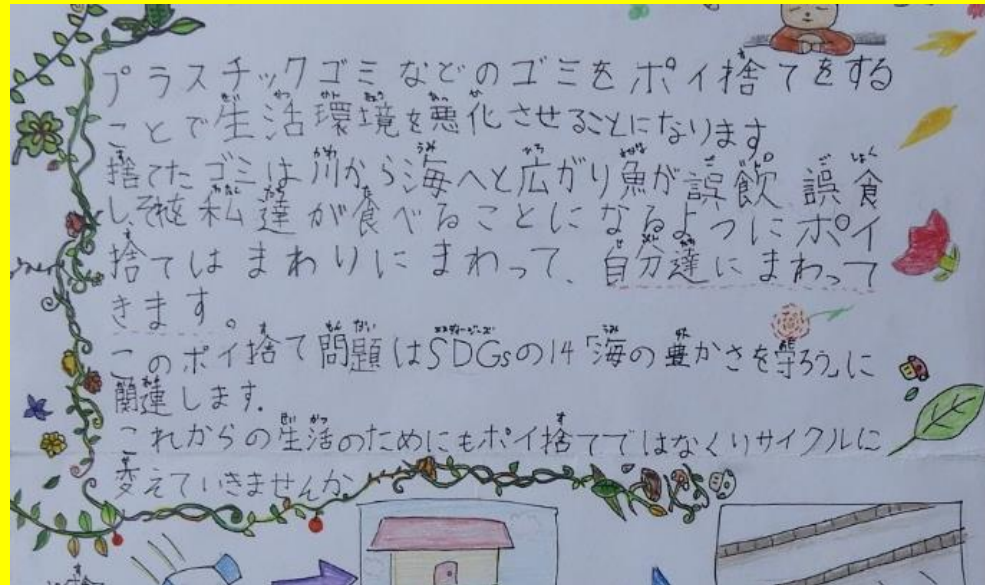 プラスチックゴミなどのゴミをポイ捨てをする
ことで生活環境を悪化させることになります
捨てたゴミは川から海へと広がり魚が誤飲 誤食
しそれを私達が食べることになるようにポイ
捨てはまわりにまわって、自分達にまわって
きます。
このポイ捨て問題はSDGsの14「海の豊かさを守ろう」に
関連します.
これからの生活のためにもポイ捨てではなくリサイクルに
変えていきませんか